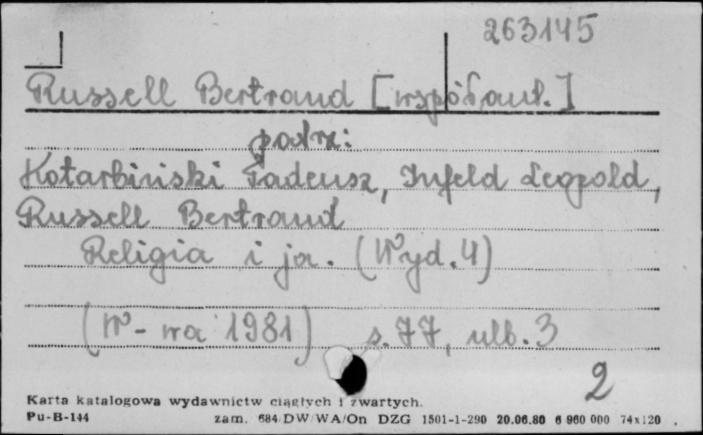 263145
Russell Bertrand [współaut.]
patrz:
Kotarbiński Tadeusz, Infeld Leopold,
Russell Bertrand
Religia i ja. (Wyd. 4)
(W-wa 1981) s. 77, nlb. 3
2
Karta katalogowa wydawnictw ciągłych i zwartych.
Pu-B-144 zam. 684/DW/WA/On DZG 1501-1-290 20.06.80 6 960 000 74x120